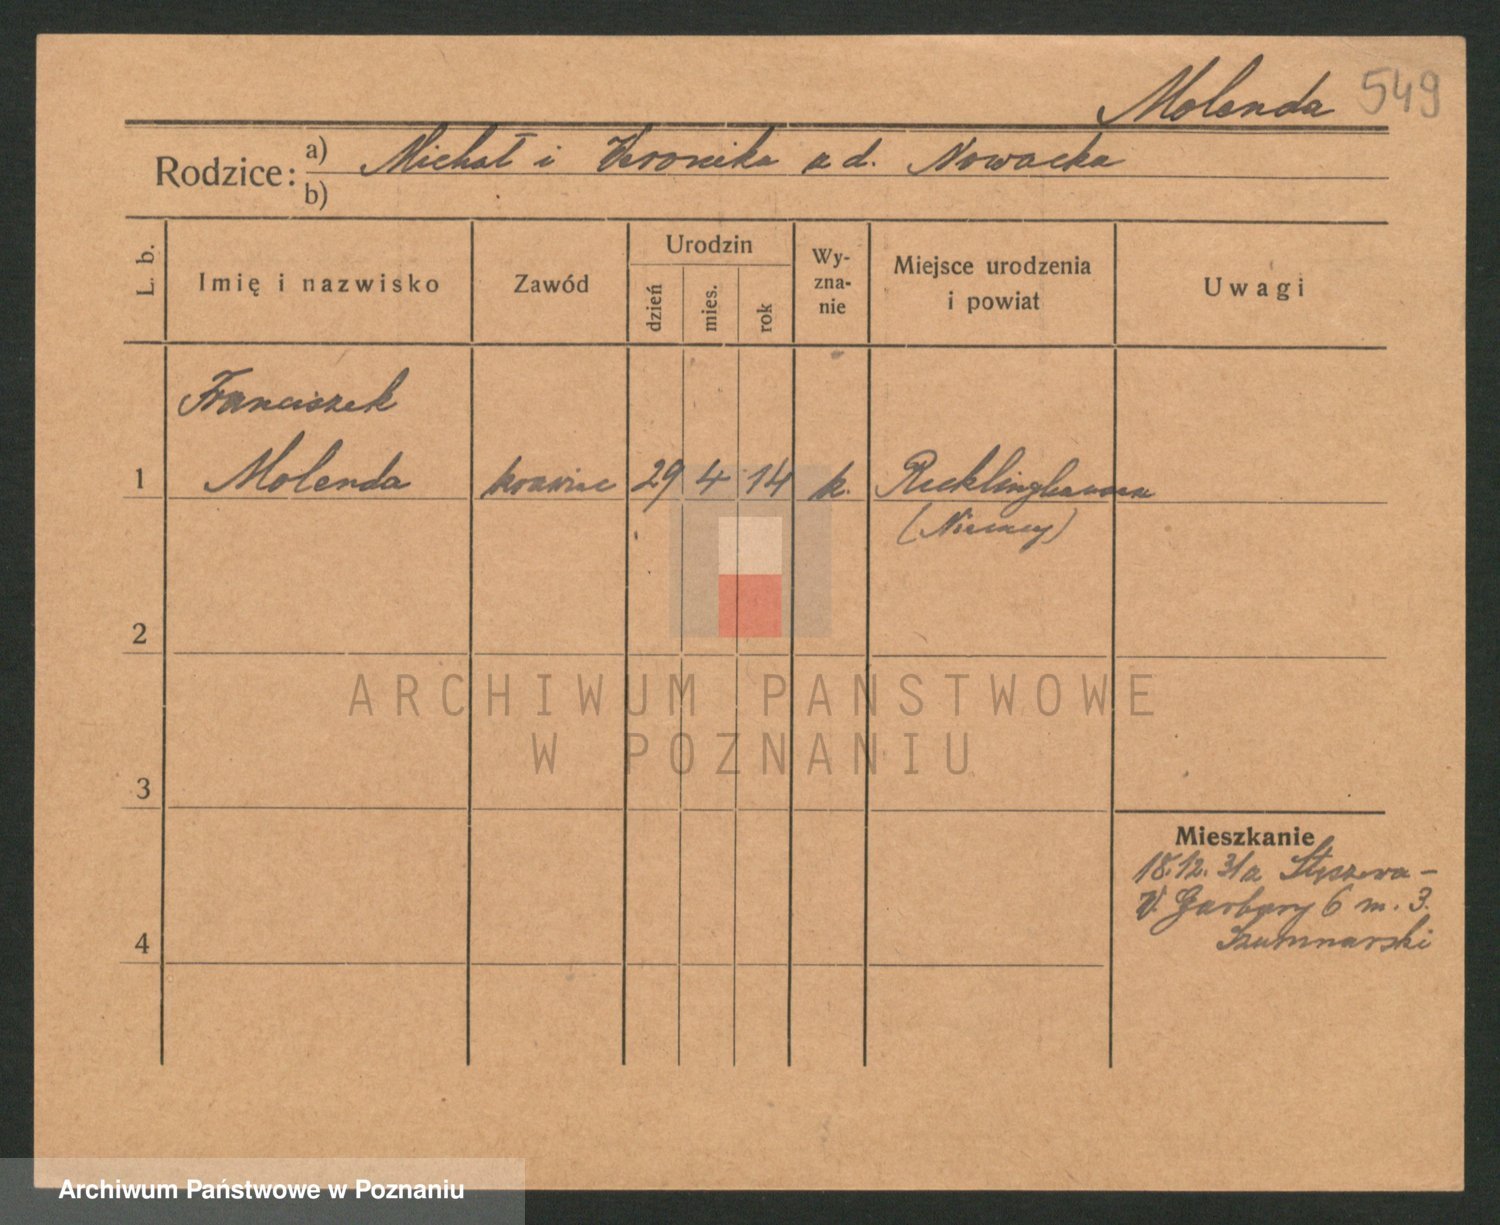 Molenda 549
Rodzice: a) Michał i Weronika z d. Nowacka
b)
L. b.
Imię i nazwisko
Zawód
Urodzin
dzień
mies.
rok
Wy-
zna-
nie
Miejsce urodzenia
i powiat
Uwagi
Franciszek
1 Molenda krawiec 29 4 14 k. Recklinghausen
(Niemcy)
2
ARCHIWUM PAŃSTWOWE
W POZNANIU
3
Mieszkanie
18.12.31 z Stęszewa -
Garbary 6 m. 3.
4 Szumnarski
Archiwum Państwowe w Poznaniu